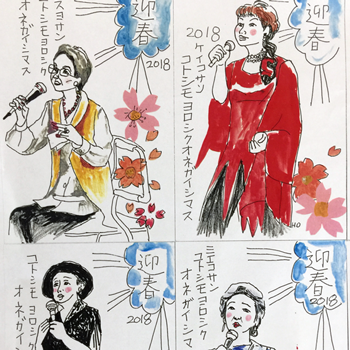 迎春
2018
スヨサン
コトシモヨロシク
オネガイシマス
迎春
2018
ケイコサン
コトシモヨロシクオネガイシマス
迎春
2018
コトシモヨロシク
オネガイシマス
迎春
2018
ミエコサン
コトシモヨロシク
オネガイシマス